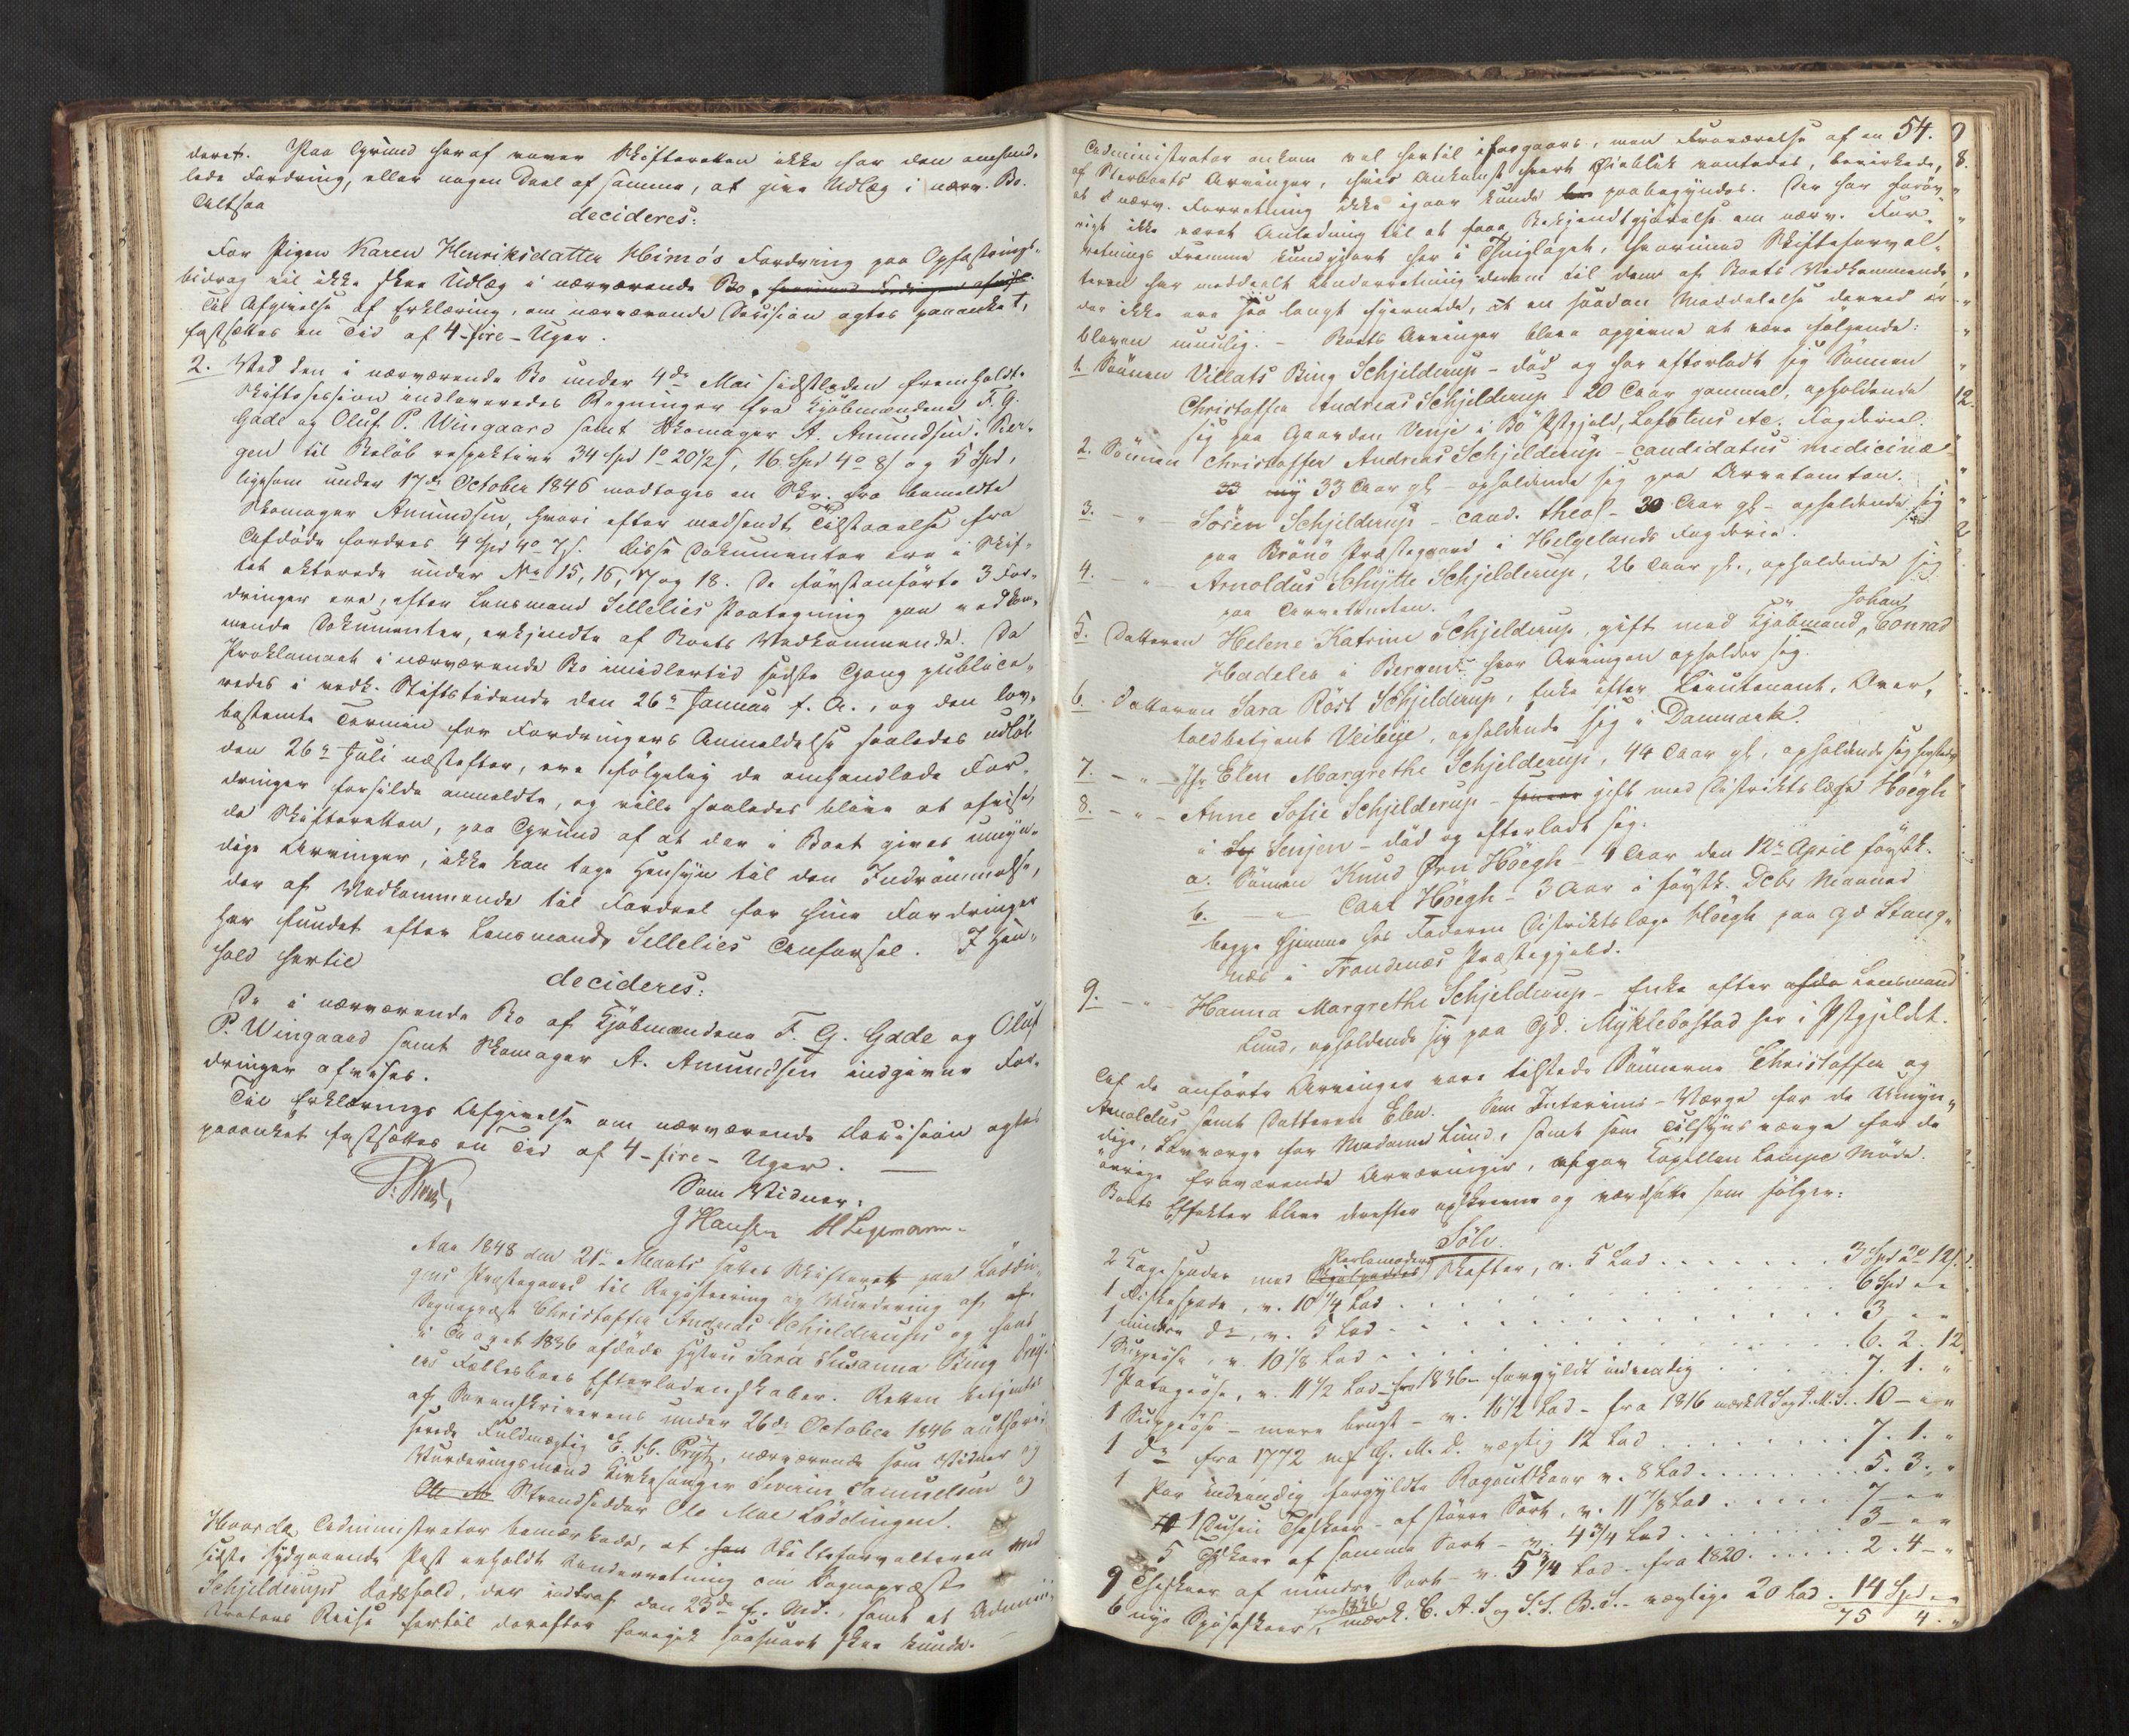 deret. Paa Grund heraf vover Skifteretten ikke for den omhand-
lede Fordring, eller nogen Deel af samme, at give Udlæg i nærv. Bo.
Altsaa
decideres:
For Pigen Karen Henriksdatter Heimø's Fordring paa Opfostrings-
bidrag vil ikke skee Udlæg i nærværende Bo.
Til Afgivelse af Erklæring, om nærværende Decision agtes paaanket,
fastsættes en Tid af 4-fire-Uger.
2. Ved den i nærværende Bo under 4de Mai sidstleden fremholdte
Skiftesession indleveredes Regninger fra Kjøbmændene F. G.
Gade og Oluf P. Wingaard samt Skomager A. Amundsen, Ber-
gen til Beløb respektive 34 Spd 1 o 20 1/2 s, 16 Spd 4 o 8 s og 5 Spd,
ligesom under 17de October 1846 modtoges en Skr. fra bemeldte
Skomager Amundsen, hvori efter medsendt Tilstaaelse fra
Afdøde fordres 4 Spd 4 o 7 s. Disse Dokumenter ere i Skif-
tet akterede under No 15, 16, 17 og 18. De førstanførte 3 For-
dringer ere, efter Lensmand Sellelies Paategning paa vedkom-
mende Dokumenter, erkjendte af Boets Vedkommende. Da
Proklamaet i nærværende Bo imidlertid sidste Gang publice-
redes i vedk. Stiftstidende den 26de Januar f. A., og den lov-
bestemte Termin for Fordringers Anmeldelse saaledes udløb
den 26de Juli næstefter, ere følgelig de omhandlede For-
dringer forsilde anmeldte, og ville saaledes blive at afvise,
da Skifteretten, paa Grund af at der i Boet gives umyn-
dige Arvinger, ikke kan tage Hensyn til den Indrømmelse,
der af Vedkommende til Fordeel for hine Fordringer
har fundet efter Lensmand Sellelies Anførsel. I Hen-
hold hertil
decideres:
De i nærværende Bo af Kjøbmændene F. G. Gade og Oluf
P. Wingaard samt Skomager A. Amundsen indgivne For-
dringer afvises.
Til Erklærings Afgivelse om nærværende Decision agtes
paaanket fastsættes en Tid af 4-fire-Uger. —
Som Vidner:
J Hansen
Aar 1848 den 21de Marts sattes Skifteret paa Løddin-
gens Præstegaard til Registrering og Vurdering af
Sognepræst Christoffer Andreas Schjelderups og hans
i Aaret 1836 afdøde Hustru Sara Susanna Bing
Fællesboes Efterladenskaber. Retten betjentes
af Sorenskriverens under 26de October 1846 authori-
serede Fuldmægtig E. B. Prytz, nærværende som Vidner og
Vurderingsmænd Kirkesanger Severin Samuelsen og
Strandsidder Ole Moe Løddingen.
Hvorda Administrator bemærkede, at Skifteforvalteren med
sidste sydgaaende Post erholdt Underretning om Sognepræst
Schjelderups Dødsfald, der indtraf den 23de f. Md., samt at Admini-
strators Reise hertil derefter foregik saasnart skee kunde.
54.
Administrator ankom vel hertil iforgaars, men Fraværelse af en
af Sterboets Arvinger, hvis Ankomst hvert Øieblik ventedes, bevirkede,
at nærv. Forretning ikke igaar kunde paabegyndes. Der har forøv-
rigt ikke været Anledning til at faae Bekjendtgjørelse om nærv. For-
retnings Fremme kundgjort her i Thinglaget, hvorimod Skifteforval-
teren har meddeelt Underretning derom til dem af Boets Vedkommende,
der ikke ere saa langt fjernede, at en saadan Meddelelse derved er
bleven umulig. - Boets Arvinger bleve opgivne at være følgende:
1. Sönnen Villats Bing Schjelderup - død og har efterladt sig Sönnen
Christoffer Andreas Schjelderup 20 Aar gammel, opholdende
sig paa Gaarden Vinje i Bø Pstgjeld, Lofotens etc. Fogderiel.
2. Sönnen Christoffer Andreas Schjelderup - candidatus medicinæ
33 Aar gl. - opholdende sig paa Arvetomten.
3. - " - Søren Schjelderup - cand. theol - 30 Aar gl - opholdende sig
paa Brönö Præstegaard i Helgelands Fogderie.
4. - " - Arnoldus Schytte Schjelderup, 26 Aar gl., opholdende sig
paa Arvetomten.
5. Datteren Helene Katrine Schjelderup, gift med Kjøbmand Johan Conrad
Hadeler i Bergen, hvor Arvingen opholder sig.
6. Datteren Sara Röst Schjelderup, Enke efter Lieutenant, Over-
toldbetjent Veibye, opholdende sig i Danmark.
7. - " - Jfr Elen Margrethe Schjelderup, 44 Aar gl, opholdende sig hersteds
8. - " - Anne Sofie Schjelderup - gift med Distriktslæge Höegh
i Senjen - död og efterladt sig.
a. Sönnen Knud Ørn Höegh - 4 Aar den 12te April førstk.
b. - " - Carl Höegh - 3 Aar i førstk. Dcbr Maaned
begge hjemme hos Faderen Distriktslæge Höegh paa Gd Stang-
næs i Trondenæs Præstegjeld.
9. - " - Hanna Margrethe Schjelderup - Enke efter Lensmand
Lund, opholdende sig paa Gd. Myklebostad her i Pstgjeldet.
Af de anførte Arvinger vare tilstede Sønnerne Christoffer og
Arnoldus samt Datteren Elen. Som Interims-Værge for de Umyn-
dige, Lavværge for Madame Lund, samt som Tilsynsværge for de
øvrige fraværende Arvinger, afgav Kapellan Lampe Møde.
Boets Effekter bleve derefter opskrevne og værdsatte som følger:
Sölv.
2 Kagespader med Perlemoders Skafter, v. 5 Lod . . . . . 3 Spd 2 o 12 s.
1 Fiskespade, v. 10 1/4 Lod . . . . . 6 Spd " "
1 mindre do, v. 5 Lod . . . . . 3 - "
1 Suppeöse, v. 10 1/8 Lod . . . . . 6. 2. 12.
1 Potageöse, v. 11 1/2 Lod - fra 1836 - forgyldt indvendig . . . . 7. 1. "
1 Suppeöse - mere brugt - v. 16 1/2 Lod - fra 1816 10 - " "
1 do fra 1772 m/ G. M. D. vægtig 12 Lod . . . . . 7. 1. "
1 Par indvendig forgyldte Ragoutskeer v. 8 Lod . . . . . 5. 3. "
1 Dusin Theskeer - af større Sort, v. 11 7/8 Lod . . . . . 7 - "
5 Theskeer af samme Sort - v. 4 3/4 Lod . . . . . 3 - "
9 Theskeer af mindre Sort - v. 5 3/4 Lod - fra 1820 . . . . . 2. 4 - "
6 nye Spiseskeer, fra 1836 mærk. C. A. S og S. S. B. S. - vægtige 20 Lod . 14 Spd " "
75 4. "